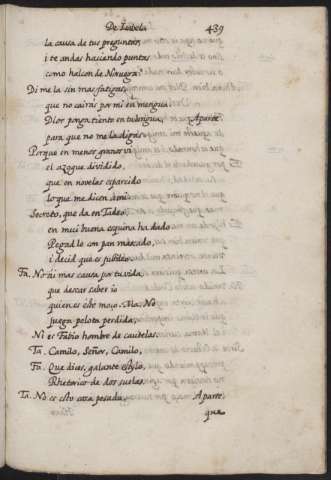 De Isabela 439
la causa de tus preguntas,
i te andas haciendo puntas
como halcon de Noruega.
Dimela sin mas fatigas,
que no cairàs por mi en mengua
Dios ponga tiento en tu lengua, Aparte.
para que no me la digas.
Porque en menos granos vi
el azogue dividido,
que en novelas esparcido
lo que me dicen à mi
Secreto, que da en Tadeo,
en mui buena esquina ha dado
Pegadlo con pan mascado,
i decid que es jubileo.
Fa. No ài mas causa por tu vida
que desear saber io
quien es este moço. Ma. No
juega pelota perdida,
Ni es Fabio hombre de cautelas.
Ta. Camilo, Señor, Camilo,
Fa. Que dices, galante estylo,
Rhetorico de dos suelas.
Ta. No es esto cosa pesada, Aparte,
que